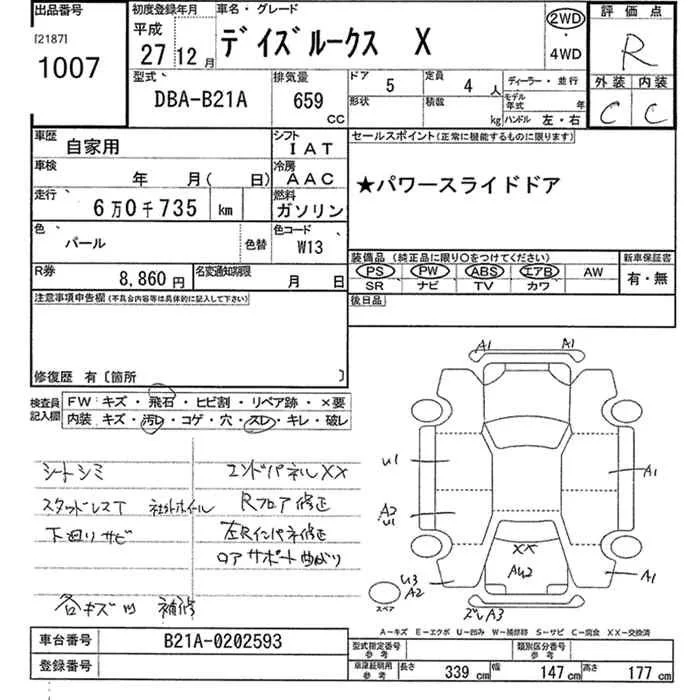 出品番号
[2187]
1007
初度登録年月
平成
27 12月
車名・グレード
デイズルークス X
2WD
・
4WD
評価点
R
外装 内装
C C
型式
DBA-B21A
排気量
659
CC
ドア 5
定員 4 人
形状
積載 kg
ディーラー・並行
モデル年式 年
ハンドル 左・右
車歴 自家用
シフト IAT
車検 年 月( 日)
冷房 AAC
走行 6万0千735 km
燃料 ガソリン
色 パール
色替
色コード W13
R券 8,860円
名変通知期限 月 日
セールスポイント(正常に機能するものに限ります)
★パワースライドドア
装備品(純正品に限り○をつけてください)
PS PW ABS エアB AW
SR ナビ TV カワ
新車保証書
有・無
後日品
注意事項申告欄(不具合内容等は具体的に記入して下さい)
修復歴 有〔箇所 〕
検査員記入欄
FW キズ・飛石・ヒビ割・リペア跡・×要
内装 キズ・汚レ・コゲ・穴・スレ・キレ・破レ
シートシミ
エンドパネルXX
スタッドレスT 社外ホイール
Rフロア修正
下廻りサビ
左Rインパネ修正
ロアサポート曲がり
各キズ凹 補修
A1 A1
U1
A1
A2
U1
XX
AU2
U3
A2
A1
スペア
ズレA3
A-キズ E-エクボ U-凹み W-補修跡 S-サビ C-腐食 XX-交換済
車台番号 B21A-0202593
登録番号
型式指定番号
参考
類別区分番号
参考
車庫証明用
参考
長さ 339 cm 幅 147 cm 高さ 177 cm